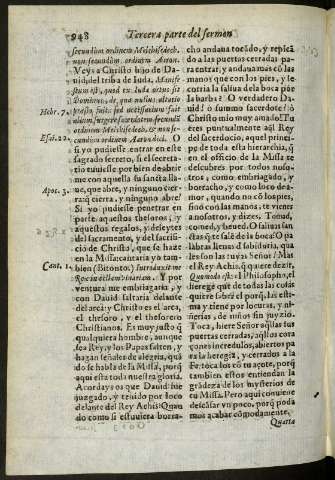 948 Tercera parte del sermon
secundum ordinem Melchisedech.
non secundum ordinem Aaron.
Veys a Christo hijo de Da-
uid del tribu de Iuda. Manife-
stum est, quod ex Iuda ortus sit
Dominus, de qua nullus altario
præsto fuit: sed
Hebr. 7.
ordinem Melchisedech, &
Esai. 22.
cundum ordinem Aaron dici. O
si yo pudiesse entrar en este
sagrado secreto, si el secreta-
rio tuuiesse por bien de abrir-
me con aquella su sancta lla-
Apoc. 3.
ue, que abre, y ninguno cier-
ra; cierra, y ninguno abre!
Si yo pudiesse penetrar en
parte aquestos thesoros; y
aquestos regalos, y deleytes
del sacramento, y del sacrifi-
cio de Christo, que se haze
en la Missa: cantaria yo tam-
Cant. 1.
bien (Bitonto.) Introduxit me
Rex in cellam vinariam. Y por
ventura me embriagaria, y
con Dauid saltaria delante
del arca: y Christo es el arca,
el thesoro, y el thesorero
Christianos. Es muy justo q̃
qualquiera hombre, aunque
sea Rey, y los Papas salten, y
hagan señales de alegria, quã
do se habla de la Missa, porq̃
aqui esta toda nuestra gloria.
Acordays os que Dauid fue
juzgado, y tenido por loco
delante del Rey Achis? Quan
do como si estuuiera borra-
cho andaua tocãdo, y repicã
do a las puertas cerradas pa-
ra entrar; y andaua mas cõ las
manos que con los pies, y le
corria la saliua dela boca por
la barba? O verdadero Da-
uid! o summo sacerdote! o
Christo mio muy amado! Tu
eres puntualmente aql̃ Rey
del sacerdocio, aquel princi-
pe de toda esta hierarchia, q̃
en el officio de la Missa te
descubres por todos noso-
tros, como embriagado, y
borracho, y como loco dea-
mor, quando no cõ los pies,
sinõ con las manos, te vienes
a nosotros, y dizes, Tomad,
comed, y beued. O saliuas san
ctas q̃ te salẽ de la boca! O pa
labras llenas de sabiduria, que
las son tus saliuas sanctas! Mas
el Rey Achis, que quiere dezir,
Quomodo est: el Philosopho, el
herege que todas las cosas
quiere saber el porq̃, las esti-
ma, y tiene por locuras, y ni-
ñerias, de niños sin juyzio.
Toca, hiere Señor aq̃llas tus
puertas cerradas, aq̃llos cora
çones incredulos, abiertos pa
ra la heregia, y cerrados a la
Fe. toca los cõ tu açote, porq̃
tambien estos entiendan la
grãdeza de los mysterios de
tu Missa. Pero aqui conuiene
descãsar vn poco, porq̃ poda
mos acabar cõmodamente.
Quarta